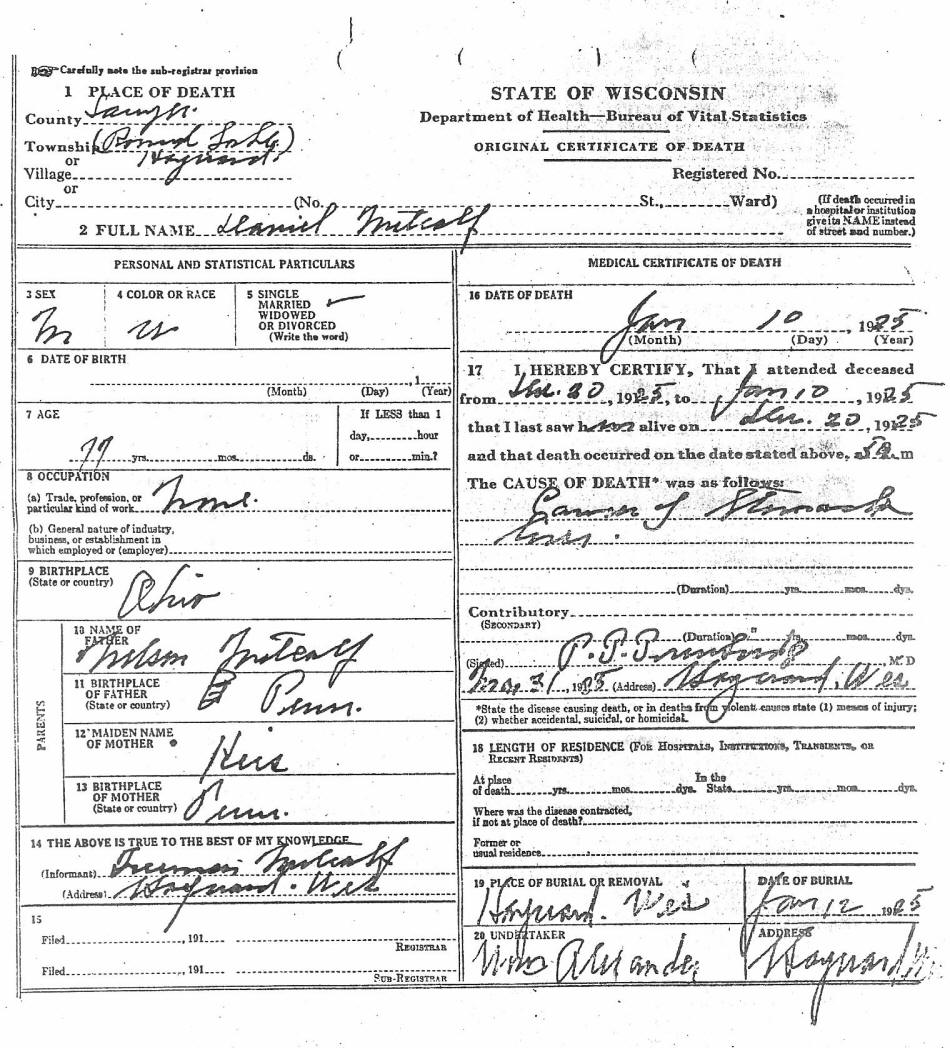 Carefully note the sub-registrar provision
1 PLACE OF DEATH
County Sawyer
Township (Round Lake)
or Hayward
Village
or
City (No. St., Ward)
STATE OF WISCONSIN
Department of Health—Bureau of Vital Statistics
ORIGINAL CERTIFICATE OF DEATH
Registered No.
(If death occurred in
a hospital or institution
give its NAME instead
of street and number.)
2 FULL NAME Daniel Metcalf
PERSONAL AND STATISTICAL PARTICULARS
3 SEX
M
4 COLOR OR RACE
W
5 SINGLE
MARRIED
WIDOWED
OR DIVORCED
(Write the word)
6 DATE OF BIRTH
, 1
(Month) (Day) (Year)
7 AGE
77 yrs. mos. ds.
If LESS than 1
day, hour
or min.?
8 OCCUPATION
(a) Trade, profession, or
particular kind of work None.
(b) General nature of industry,
business, or establishment in
which employed or (employer)
9 BIRTHPLACE
(State or country) Ohio
PARENTS
10 NAME OF
FATHER Nelson Metcalf
11 BIRTHPLACE
OF FATHER
(State or country) Penn.
12 MAIDEN NAME
OF MOTHER
13 BIRTHPLACE
OF MOTHER
(State or country) Penn.
14 THE ABOVE IS TRUE TO THE BEST OF MY KNOWLEDGE
(Informant) Freeman Metcalf
(Address) Hayward. Wis
15
Filed , 191
REGISTRAR
Filed , 191
SUB-REGISTRAR
MEDICAL CERTIFICATE OF DEATH
16 DATE OF DEATH
Jan 10, 1925
(Month) (Day) (Year)
17 I HEREBY CERTIFY, That I attended deceased
from Dec. 20, 1925, to Jan 10, 1925
that I last saw him alive on Dec. 20, 1925
and that death occurred on the date stated above, at m
The CAUSE OF DEATH* was as follows:
Cancer of Stomach
(Duration) yrs. mos. dys.
Contributory
(SECONDARY)
(Duration) yrs. mos. dys.
(Signed) M D
31, 1925 (Address) Hayward, Wis
*State the disease causing death, or in deaths from violent causes state (1) means of injury;
(2) whether accidental, suicidal, or homicidal.
18 LENGTH OF RESIDENCE (FOR HOSPITALS, INSTITUTIONS, TRANSIENTS, OR
RECENT RESIDENTS)
At place
of death yrs. mos. dys.
In the
State yrs. mos. dys.
Where was the disease contracted,
if not at place of death?
Former or
usual residence
19 PLACE OF BURIAL OR REMOVAL
Hayward. Wis
DATE OF BURIAL
Jan 12 1925
20 UNDERTAKER
Wm Alexander
ADDRESS
Hayward